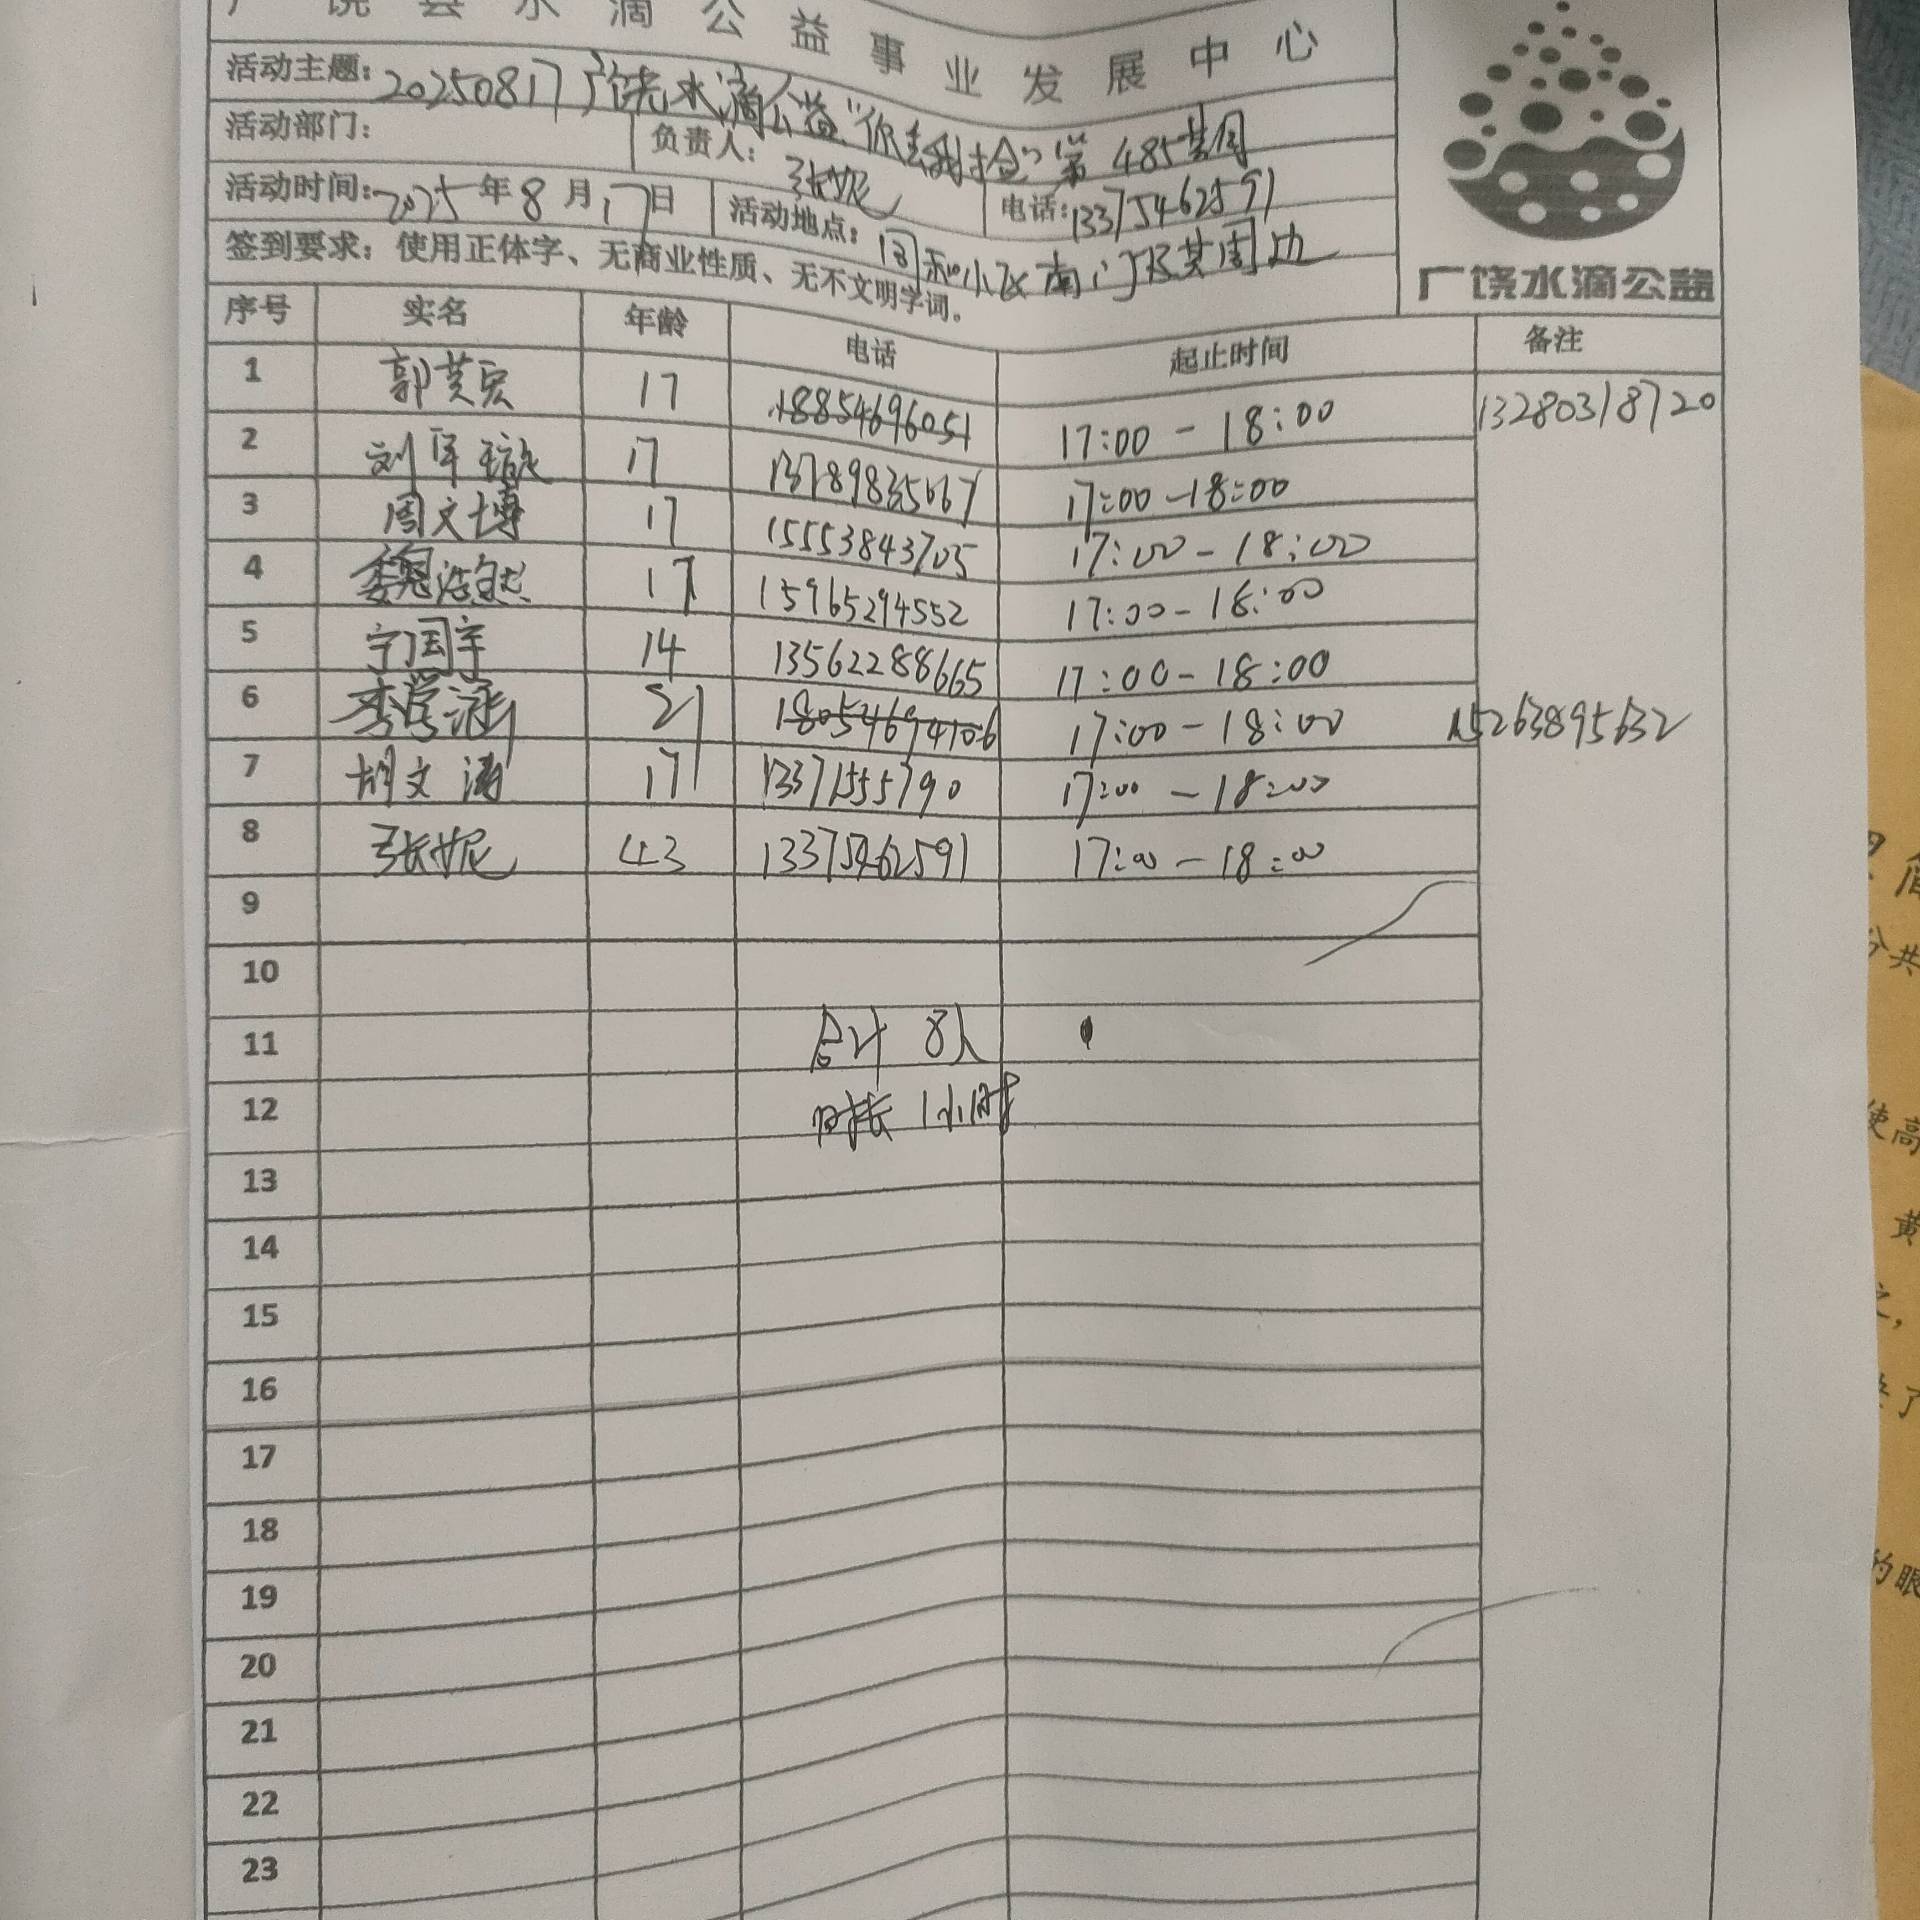 广饶县水滴公益事业发展中心
活动主题：20250817广饶水滴公益"你丢我捡"第485期
活动部门： 负责人：张妮 电话：13375462591
活动时间：2025年8月17日 活动地点：同和小区南门及其周边
签到要求：使用正体字、无商业性质、无不文明字词。
广饶水滴公益
序号 实名 年龄 电话 起止时间 备注
1 郭 17 18854696051 17:00-18:00 13280318720
2 刘军 17 17:00-18:00
3 周文博 17 15553843705 17:00-18:00
4 魏浩然 17 15965294552 17:00-18:00
5 宁国宇 14 13562288665 17:00-18:00
6 李学涵 21 17:00-18:00 15263895632
7 胡文涛 17 13371555790 17:00-18:00
8 张妮 43 13375462591 17:00-18:00
9
10
11 合计 8人
12 时长 1小时
13
14
15
16
17
18
19
20
21
22
23
份共
使高
黄
之，
的眼